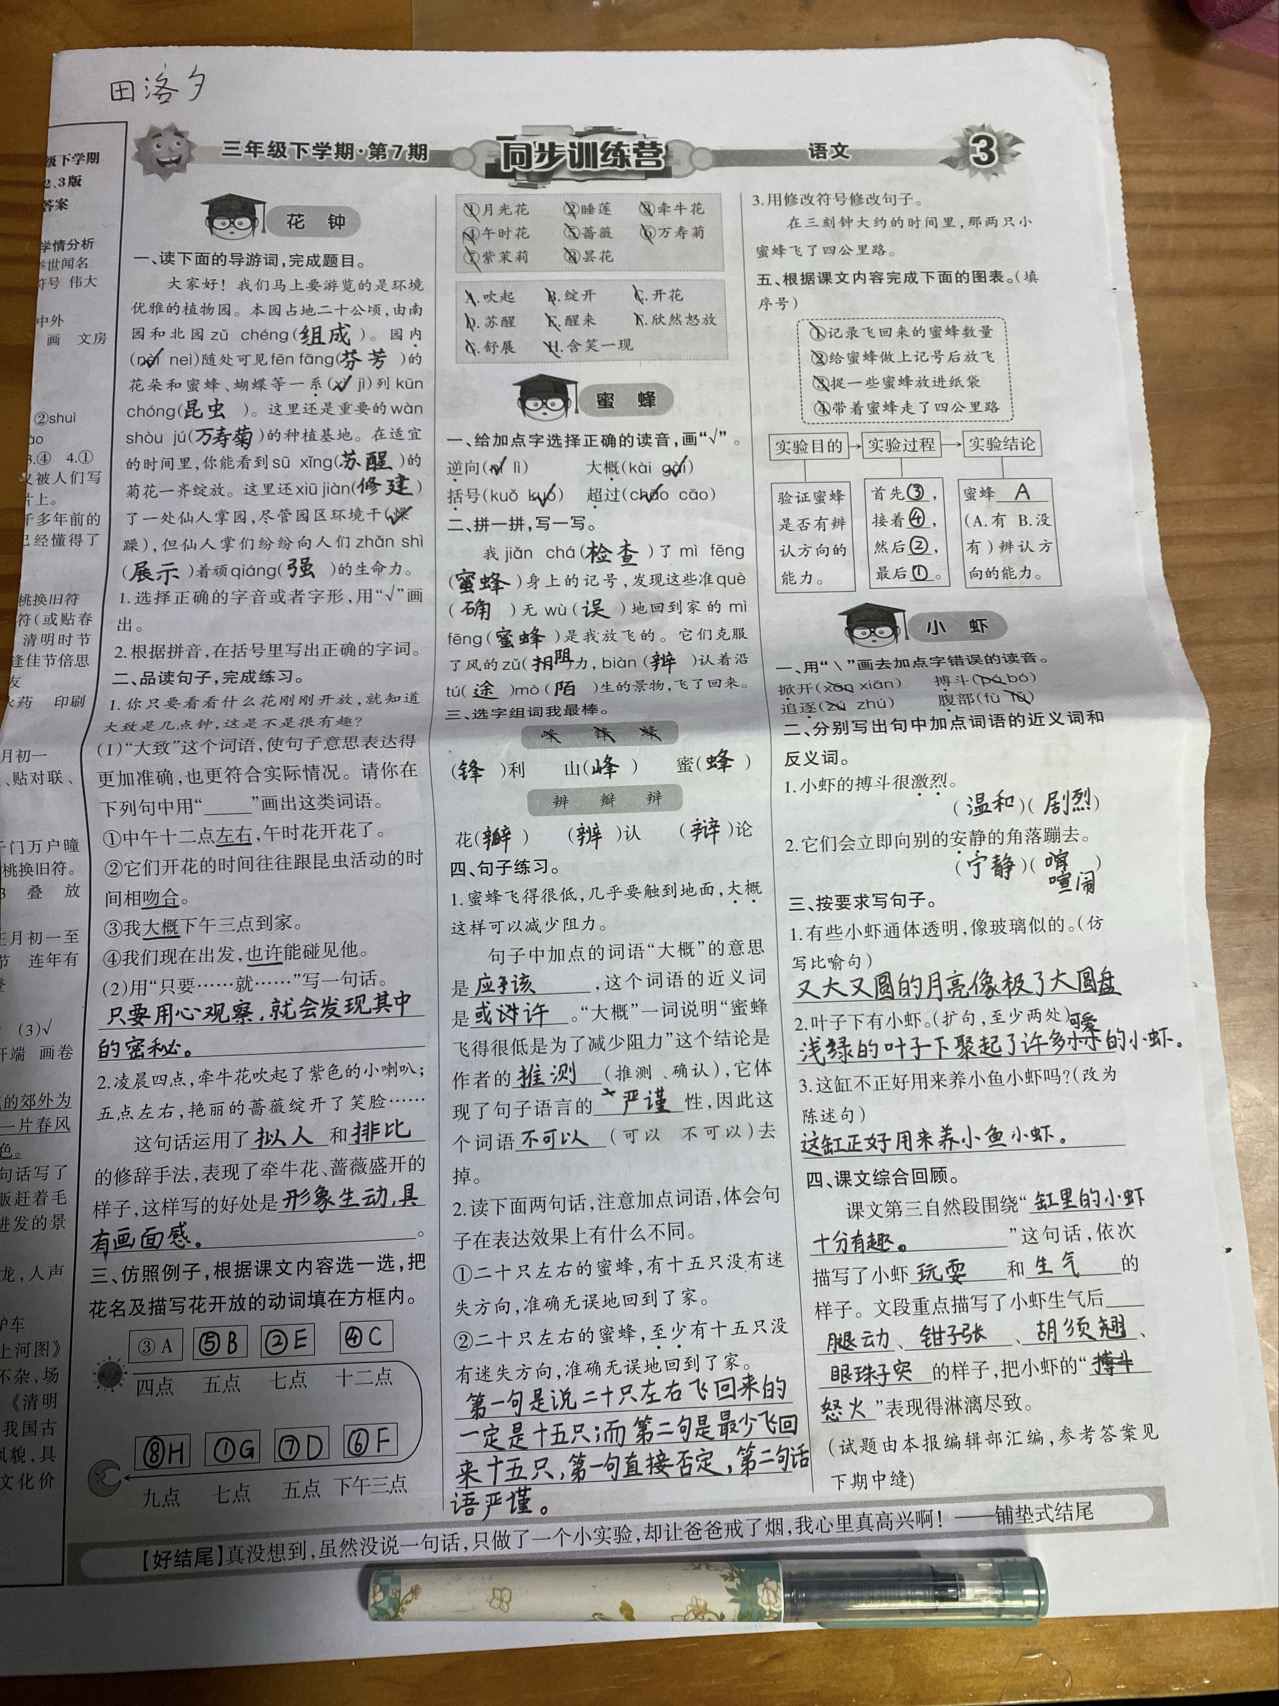 田洛夕
三年级下学期·第7期
同步训练营
语文
3
级下学期
2、3版
答案
学情分析
举世闻名
符号 伟大
中外
画 文房
②shuì
3.④ 4.①
又被人们写
片上。
千多年前的
已经懂得了
桃换旧符
符(或贴春
清明时节
逢佳节倍思
友
火药 印刷
月初一
、贴对联、
千门万户曈
桃换旧符。
3 叠 放
正月初一至
节 连年有
(3)√
开端 画卷
的郊外为
一片春风
色。
句话写了
贩赶着毛
进发的景
龙,人声
驴车
上河图》
不杂,场
《清明
我国古
风貌,具
文化价
花 钟
一、读下面的导游词,完成题目。
大家好!我们马上要游览的是环境
优雅的植物园。本园占地二十公顷,由南
园和北园zǔ chéng(组成)。园内
(nèi neì)随处可见fēn fāng(芬芳)的
花朵和蜜蜂、蝴蝶等一系(xì jì)列kūn
chóng(昆虫)。这里还是重要的wàn
shòu jú(万寿菊)的种植基地。在适宜
的时间里,你能看到sū xǐng(苏醒)的
菊花一齐绽放。这里还xiū jiàn(修建)
了一处仙人掌园,尽管园区环境干(燥
躁),但仙人掌们纷纷向人们zhǎn shì
(展示)着顽qiáng(强)的生命力。
1.选择正确的字音或者字形,用“√”画
出。
2.根据拼音,在括号里写出正确的字词。
二、品读句子,完成练习。
1.你只要看看什么花刚刚开放,就知道
大致是几点钟,这是不是很有趣?
(1)“大致”这个词语,使句子意思表达得
更加准确,也更符合实际情况。请你在
下列句中用“____”画出这类词语。
①中午十二点左右,午时花开花了。
②它们开花的时间往往跟昆虫活动的时
间相吻合。
③我大概下午三点到家。
④我们现在出发,也许能碰见他。
(2)用“只要……就……”写一句话。
只要用心观察,就会发现其中
的密秘。
2.凌晨四点,牵牛花吹起了紫色的小喇叭;
五点左右,艳丽的蔷薇绽开了笑脸……
这句话运用了拟人和排比
的修辞手法,表现了牵牛花、蔷薇盛开的
样子,这样写的好处是形象生动,具
有画面感。。
三、仿照例子,根据课文内容选一选,把
花名及描写花开放的动词填在方框内。
③A ⑤B ②E ④C
四点 五点 七点 十二点
⑧H ①G ⑦D ⑥F
九点 七点 五点 下午三点
①月光花 ②睡莲 ③牵牛花
④午时花 ⑤蔷薇 ⑥万寿菊
⑦紫茉莉 ⑧昙花
A.吹起 B.绽开 C.开花
D.苏醒 E.醒来 F.欣然怒放
G.舒展 H.含笑一现
蜜 蜂
一、给加点字选择正确的读音,画“√”。
逆向(nì lì) 大概(kài gài)
括号(kuǒ kuò) 超过(chāo cāo)
二、拼一拼,写一写。
我jiǎn chá(检查)了mì fēng
(蜜蜂)身上的记号,发现这些准què
(确)无wù(误)地回到家的mì
fēng(蜜蜂)是我放飞的。它们克服
了风的zǔ(阻力,biàn(辨)认着沿
tú(途)mò(陌)生的景物,飞了回来。
三、选字组词我最棒。
峰 锋 蜂
(锋)利 山(峰) 蜜(蜂)
辨 瓣 辩
花(瓣) (辨)认 (辩)论
四、句子练习。
1.蜜蜂飞得很低,几乎要触到地面,大概
这样可以减少阻力。
句子中加点的词语“大概”的意思
是应该,这个词语的近义词
是或许。“大概”一词说明“蜜蜂
飞得很低是为了减少阻力”这个结论是
作者的推测(推测、确认),它体
现了句子语言的严谨性,因此这
个词语不可以(可以 不可以)去
掉。
2.读下面两句话,注意加点词语,体会句
子在表达效果上有什么不同。
①二十只左右的蜜蜂,有十五只没有迷
失方向,准确无误地回到了家。
②二十只左右的蜜蜂,至少有十五只没
有迷失方向,准确无误地回到了家。
第一句是说二十只左右飞回来的
一定是十五只;而第二句是最少飞回
来十五只,第一句直接否定,第二句话
语严谨。
3.用修改符号修改句子。
在三刻钟大约的时间里,那两只小
蜜蜂飞了四公里路。
五、根据课文内容完成下面的图表。(填
序号)
①记录飞回来的蜜蜂数量
②给蜜蜂做上记号后放飞
③捉一些蜜蜂放进纸袋
④带着蜜蜂走了四公里路
实验目的 实验过程 实验结论
验证蜜蜂
是否有辨
认方向的
能力。
首先③,
接着④,
然后②,
最后①。
蜜蜂A
(A.有 B.没
有)辨认方
向的能力。
小 虾
一、用“\”画去加点字错误的读音。
掀开(xān xiān) 搏斗(pó bó)
追逐(zú zhú) 腹部(fù fū)
二、分别写出句中加点词语的近义词和
反义词。
1.小虾的搏斗很激烈。
(温和)(剧烈)
2.它们会立即向别的安静的角落蹦去。
(宁静)(喧闹)
三、按要求写句子。
1.有些小虾通体透明,像玻璃似的。(仿
写比喻句)
又大又圆的月亮像极了大圆盘
2.叶子下有小虾。(扩句,至少两处)
浅绿的叶子下聚起了许多可爱的小虾。
3.这缸不正好用来养小鱼小虾吗?(改为
陈述句)
这缸正好用来养小鱼小虾。
四、课文综合回顾。
课文第三自然段围绕“缸里的小虾
十分有趣。”这句话,依次
描写了小虾玩耍和生气的
样子。文段重点描写了小虾生气后
腿动、钳子张、胡须翘、
眼珠子突的样子,把小虾的“
怒火”表现得淋漓尽致。
(试题由本报编辑部汇编,参考答案见
下期中缝)
【好结尾】真没想到,虽然没说一句话,只做了一个小实验,却让爸爸戒了烟,我心里真高兴啊!——铺垫式结尾